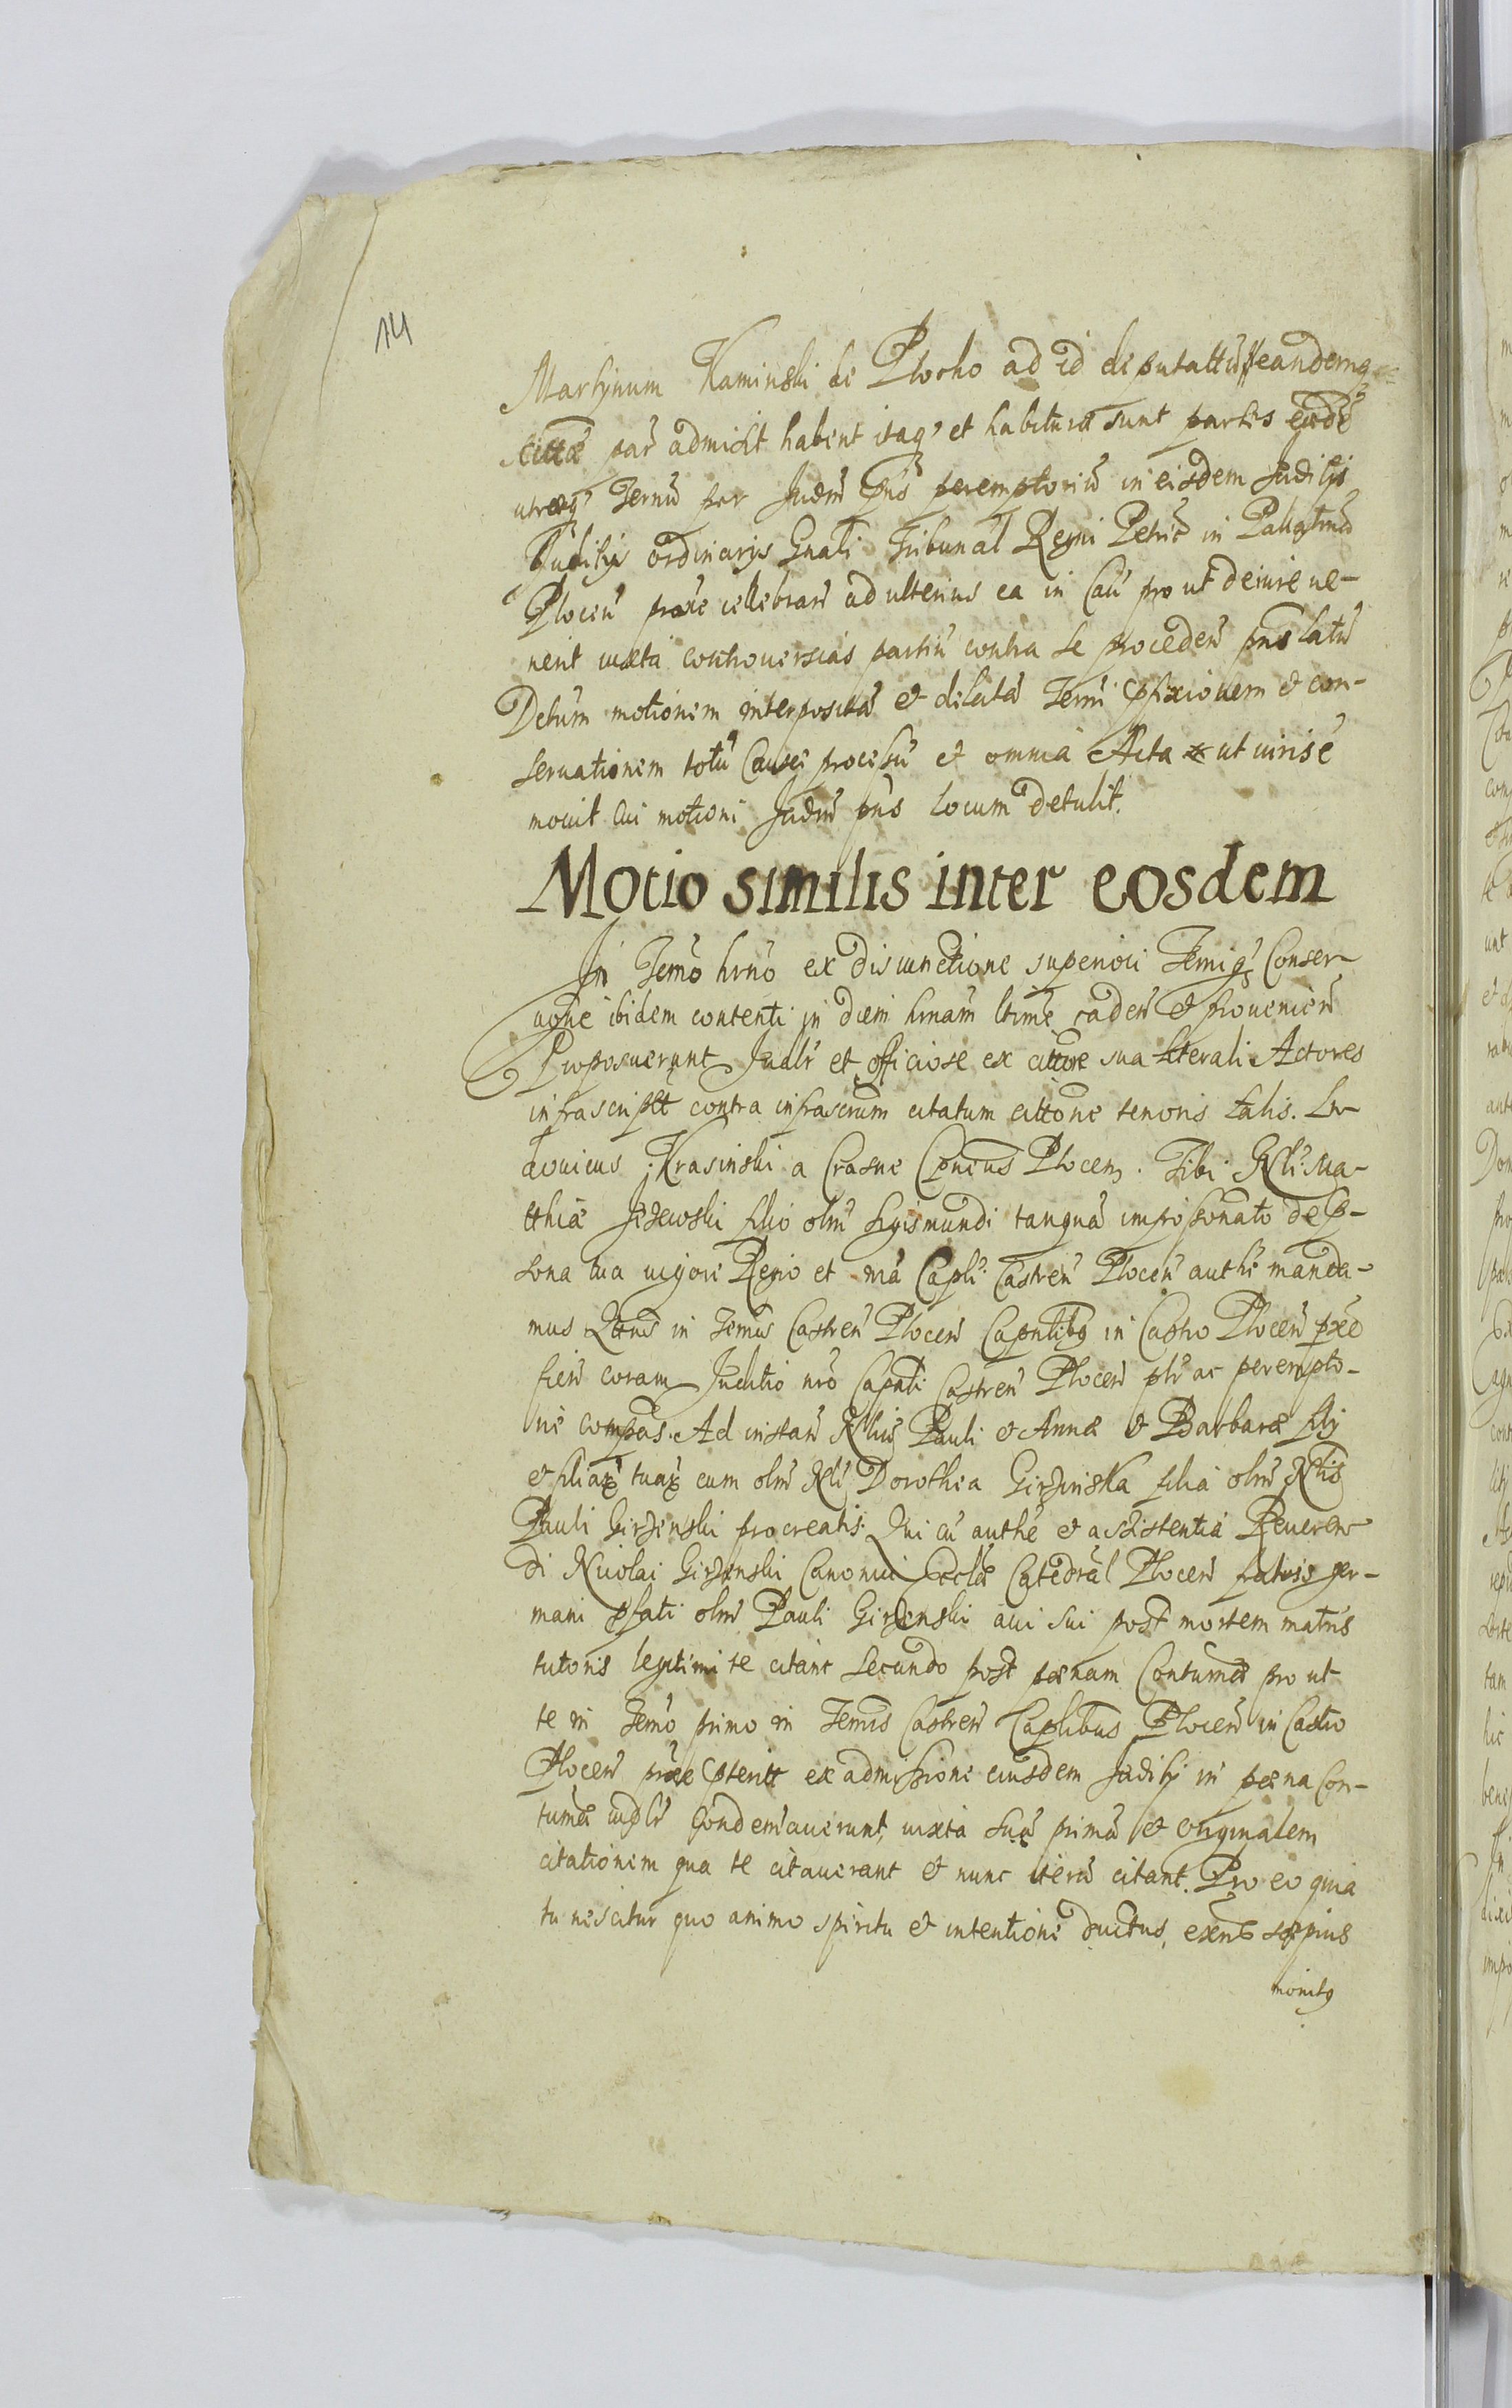 14
Martynum Kaminski de Plocko ad id deputattū eandemq
par admisit habent itaq et habitura sunt partes eidē
utræq Termū per Judm̄ pn̄s peremptoriū in eisdem Juditijs
Juditijs ordinarijs Gn̄ali Tribunal Regni Petric̄ in Palatinū
Plocen̄ præxe cellebran̄ ad ulterius ea in Cau pro ut de iure ue-
nerit iuxta controuersias partiū contra se proceden̄ pn̄s latū
Detum motionem interpositā et dilatā Termi pfixionem et con-
seruationem totū Causæ processū et omnia Acta ut uiris ē
mouit Cui motioni Judm̄ pn̄s locum detulit.
Motio similis inter eosdem
In Termo hrno ex disiunctione superiori Termiq Conser-
uone ibidem contenti in diem hrnam ltime caden̄ et prouenien̄
Proposuerunt Jualr et officiose ex cittone sua literali Actores
infrascriptt contra infrascrum citatum cittone tenoris talis. Lu-
douicus Krasinski a Crasne Cpneus Plocen. Tibi Nbli Ma-
tthiæ Jezewski filio olm̄ Sigismundi tanquā impossonato de p-
sona tua uigore Regio et nrā Capli Castren̄ Plocen̄ authe manda-
mus Qtnus in Termis Castren̄ Plocen̄ Capnlibq in Castro Plocen̄ pxe
fien̄ coram Juditio nro Capnli Castren̄ Plocen̄ plr ac perempto-
rie compas. Ad instan̄ Nbliū Pauli et Annæ et Barbaræ filij
et filiar tuar cum olm̄ Nbli Dorothea Girzinska filia olm̄ Nblis
Pauli Girzinski procreatis. Qui cū authe et assistentia Reueren-
di Nicolai Girzinski Canonici Ecclæ Catedral Plocen̄ fratris ger-
mani pfati olm̄ Pauli Girzinski aui sui post mortem matris
tutoris legitimi te citant secundo post pænam Contumæ pro ut
te in Termo primo in Termis Castren̄ Caplibus Plocen̄ in Castro
Plocen̄ præxe pteritt ex admissione eiusdem Juditij in pæna Con-
tumæ iudlr Condemauerunt, iuxta suā primā et originalem
citationem qua te citauerant et nunc iterū citant. Pro eo quia
tu nescitur quo animo spiritu et intentione ductus, sæpius
monitq